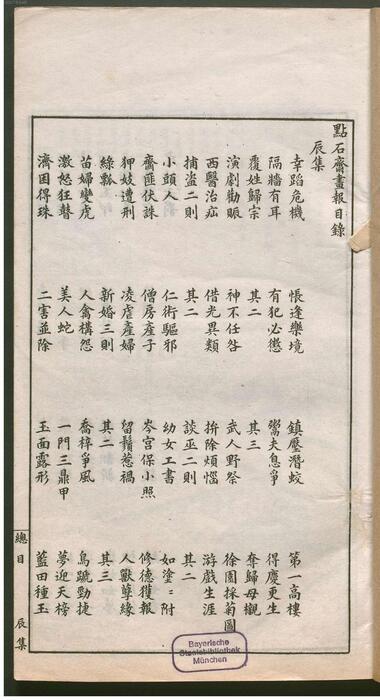 點石齋畫報目錄
辰集
幸蹈危機 悵逢樂境 鎮壓潛蛟 第一高樓
隔牆有耳 有犯必懲 鬻夫息爭 得慶更生
覆姓歸宗 其二 其三 奪歸母櫬
演劇勸賑 神不任咎 武人野祭 徐園採菊圖
西醫治疝 借光異類 拚除煩惱 游戲生涯
捕盜二則 其二 談巫二則 其二
小頭人 仁術驅邪 幼女工書 如塗〻附
齋匪伏誅 僧房產子 岑宮保小照 修德獲報
狎妓遭刑 凌虐產婦 留鬚惹禍 人獸孽緣
綠瓢 新婚三則 其二 其三
苗婦變虎 人禽構怨 喬梓爭風 鳥蹏勁捷
激怒狂瞽 美人蛇 一門三鼎甲 夢迎天榜
濟困得珠 二害並除 玉面露形 藍田種玉
總目 辰集
Bayerische
Staatsbibliothek
München